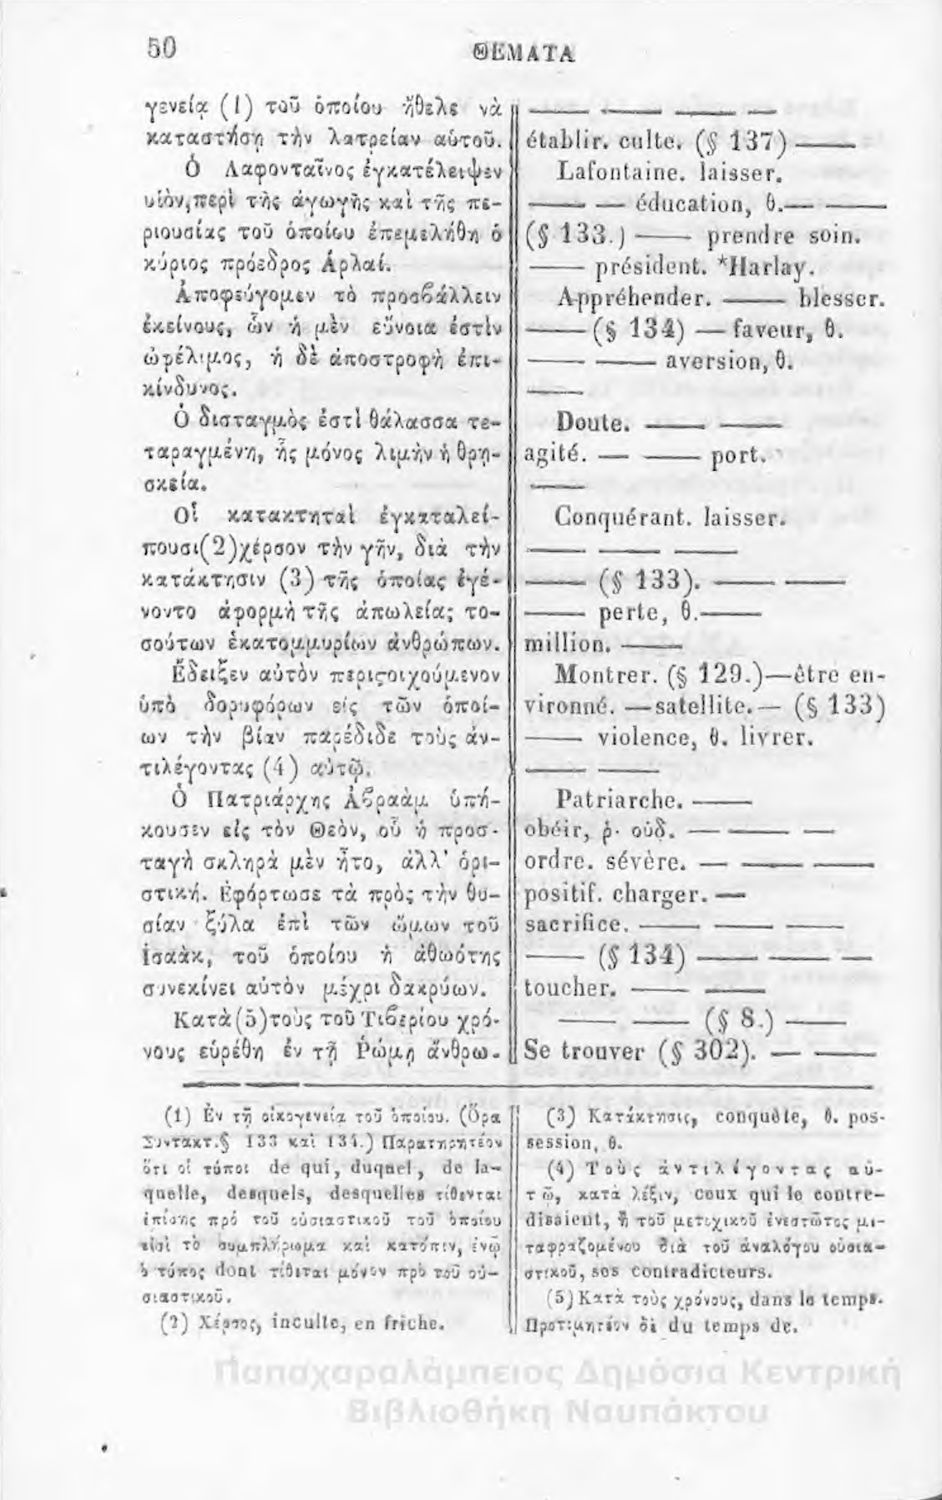 50
ΘΕΜΑΤΑ
γενείᾳ (1) τοῦ ὁποίου ἤθελε νὰ
καταστήσῃ τὴν λατρείαν αὑτοῦ.
Ὁ Λαφονταῖνος ἐγκατέλειψεν
υἱὸν, περὶ τῆς ἀγωγῆς καὶ τῆς πε-
ριουσίας τοῦ ὁποίου ἐπεμελήθη ὁ
κύριος πρόεδρος Ἀρλαί.
Ἀποφεύγομεν τὸ προσβάλλειν
ἐκείνους, ὧν ἡ μὲν εὔνοια ἐστὶν
ὠφέλιμος, ἡ δὲ ἀποστροφὴ ἐπι-
κίνδυνος.
Ὁ δισταγμὸς ἐστὶ θάλασσα τε-
ταραγμένη, ἧς μόνος λιμὴν ἡ θρη-
σκεία.
Οἱ κατακτηταὶ ἐγκαταλεί-
πουσι(2)χέρσον τὴν γῆν, διὰ τὴν
κατάκτησιν (3) τῆς ὁποίας ἐγέ-
νοντο ἀφορμὴ τῆς ἀπωλείας το-
σούτων ἑκατομμυρίων ἀνθρώπων.
Ἔδειξεν αὐτὸν περιστοιχούμενον
ὑπὸ δορυφόρων εἰς τῶν ὁποί-
ων τὴν βίαν παρέδιδε τοὺς ἀν-
τιλέγοντας (4) αὐτῷ.
Ὁ Πατριάρχης Ἀβραὰμ ὑπή-
κουσεν εἰς τὸν Θεὸν, οὗ ἡ προσ-
ταγὴ σκληρὰ μὲν ἦτο, ἀλλ' ὁρι-
στική. Ἐφόρτωσε τὰ πρὸς τὴν θυ-
σίαν ξύλα ἐπὶ τῶν ὤμων τοῦ
Ἰσαὰκ, τοῦ ὁποίου ἡ ἀθωότης
συνεκίνει αὐτὸν μέχρι δακρύων.
Κατὰ(5)τοὺς τοῦ Τιβερίου χρό-
νους εὑρέθη ἐν τῇ Ῥώμῃ ἄνθρω-
établir. culte. (§ 137)
Lafontaine. laisser.
éducation, θ.
(§ 133.) prendre soin.
président. *Harlay.
Appréhender. blesser.
(§ 134) faveur, θ.
aversion, θ.
Doute.
agité. port.
Conquérant. laisser.
(§ 133).
perte, θ.
million.
Montrer. (§ 129.)—être en-
vironné. —satellite.— (§ 133)
violence, θ. livrer.
Patriarche.
obéir, ῥ. οὐδ.
ordre. sévère.
positif. charger.
sacrifice.
(§ 134)
toucher.
(§ 8.)
Se trouver (§ 302).
(1) Ἐν τῇ οἰκογενείᾳ τοῦ ὁποίου. (Ὅρα
Συντακτ.§ 133 καὶ 134.) Παρατηρητέον
ὅτι οἱ τύποι de qui, duquel, de la-
quelle, desquels, desquelles τίθενται
ἐπίσης πρὸ τοῦ οὐσιαστικοῦ τοῦ ὁποίου
εἰσὶ τὸ συμπλήρωμα καὶ κατόπιν, ἐνῷ
ὁ τύπος dont τίθεται μόνον πρὸ τοῦ οὐ-
σιαστικοῦ.
(2) Χέρσος, inculte, en friche.
(3) Κατάκτησις, conquête, θ. pos-
session, θ.
(4) Τοὺς ἀντιλέγοντας αὐ-
τῷ, κατὰ λέξιν, ceux qui le contre-
disaient, ἢ τοῦ μετοχικοῦ ἐνεστῶτος με-
ταφραζομένου διὰ τοῦ ἀναλόγου οὐσια-
στικοῦ, ses contradicteurs.
(5) Κατὰ τοὺς χρόνους, dans le temps.
Προτιμητέον δὲ du temps de.
Παπαχαραλάμπειος Δημόσια Κεντρική
Βιβλιοθήκη Ναυπάκτου